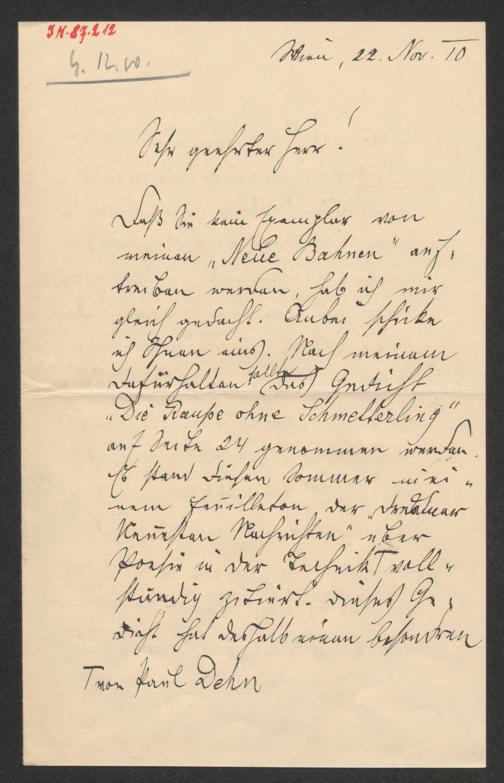 IN. 87.212
Wien, 22. Nov. 10
Sehr geehrter Herr!
Daß Sie kein Exemplar von
meinen „Neue Bahnen“ auf-
treiben werden, hab ich mir
gleich gedacht. Anbei schicke
ich Ihnen eins. Nach meinem
Dafürhalten sollte das Gedicht
„Die Raupe ohne Schmetterling“
auf Seite 24 genommen werden.
Es stand diesen Sommer in ei-
nem Feuilleton der „Dresdner
Neuesten Nachrichten“ über
Poesie in der Technik ⊤ voll-
ständig zitiert. Dieses Ge-
dicht hat deshalb einen besondren
⊤ von Paul Dehn